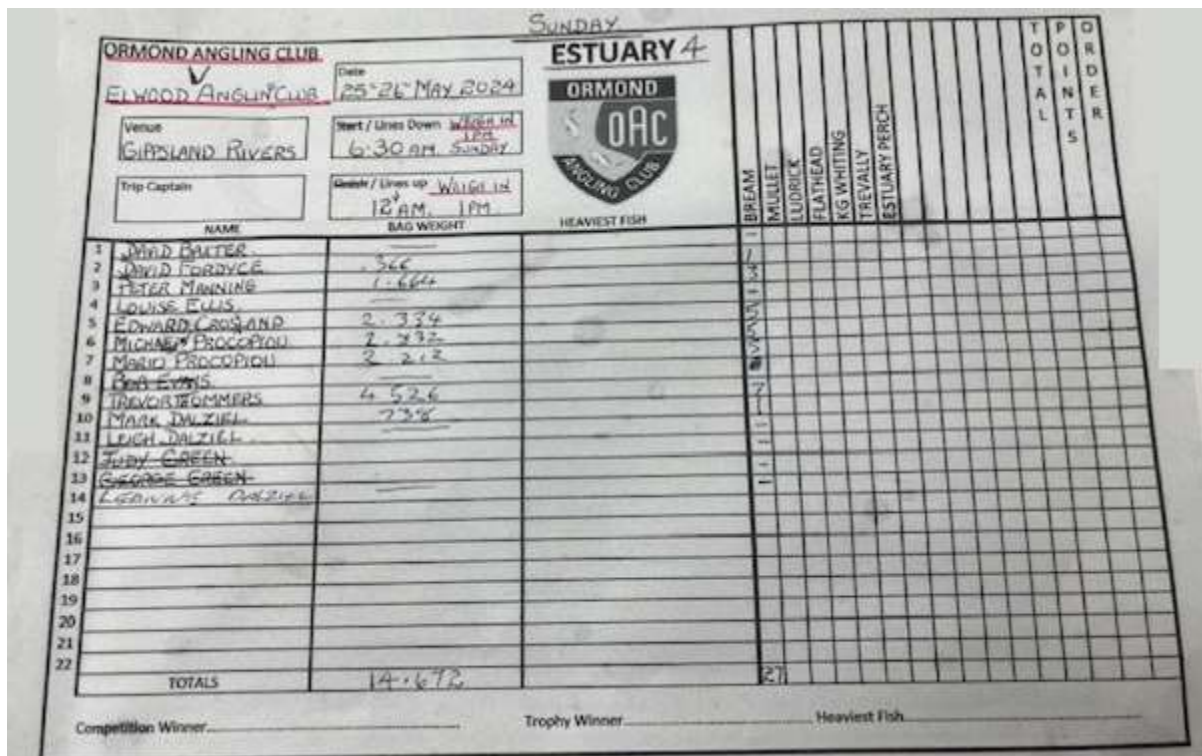 SUNDAY
ORMOND ANGLING CLUB
V
ELWOOD ANGLING CLUB
Date
25-26 MAY 2024
ESTUARY 4
ORMOND
OAC
ANGLING CLUB
Venue
GIPPSLAND RIVERS
Start / Lines Down WEIGH IN
1PM
6:30 AM SUNDAY
Trip Captain
Finish / Lines up WEIGH IN
12 AM. 1PM.
NAME BAG WEIGHT HEAVIEST FISH
BREAM
MULLET
LUDRICK
FLATHEAD
KG WHITING
TREVALLY
ESTUARY PERCH
TOTAL
POINTS
ORDER
1 DAVID BAXTER. —
2 DAVID FORDYCE .366
3 PETER MANNING 1.664
4 LOUISE ELLIS. —
5 EDWARD CROSLAND 2.334
6 MICHAEL PROCOPIOU 2.832
7 MARIO PROCOPIOU 2.212
8 BOB EVANS. —
9 TREVOR TOMMERS 4.526
10 MARK DALZIEL 738
11 LEIGH DALZIEL —
12 JUDY GREEN
13 GEORGE GREEN
14 DALZIEL —
15
16
17
18
19
20
21
22
TOTALS 14.672 27
Competition Winner Trophy Winner Heaviest Fish